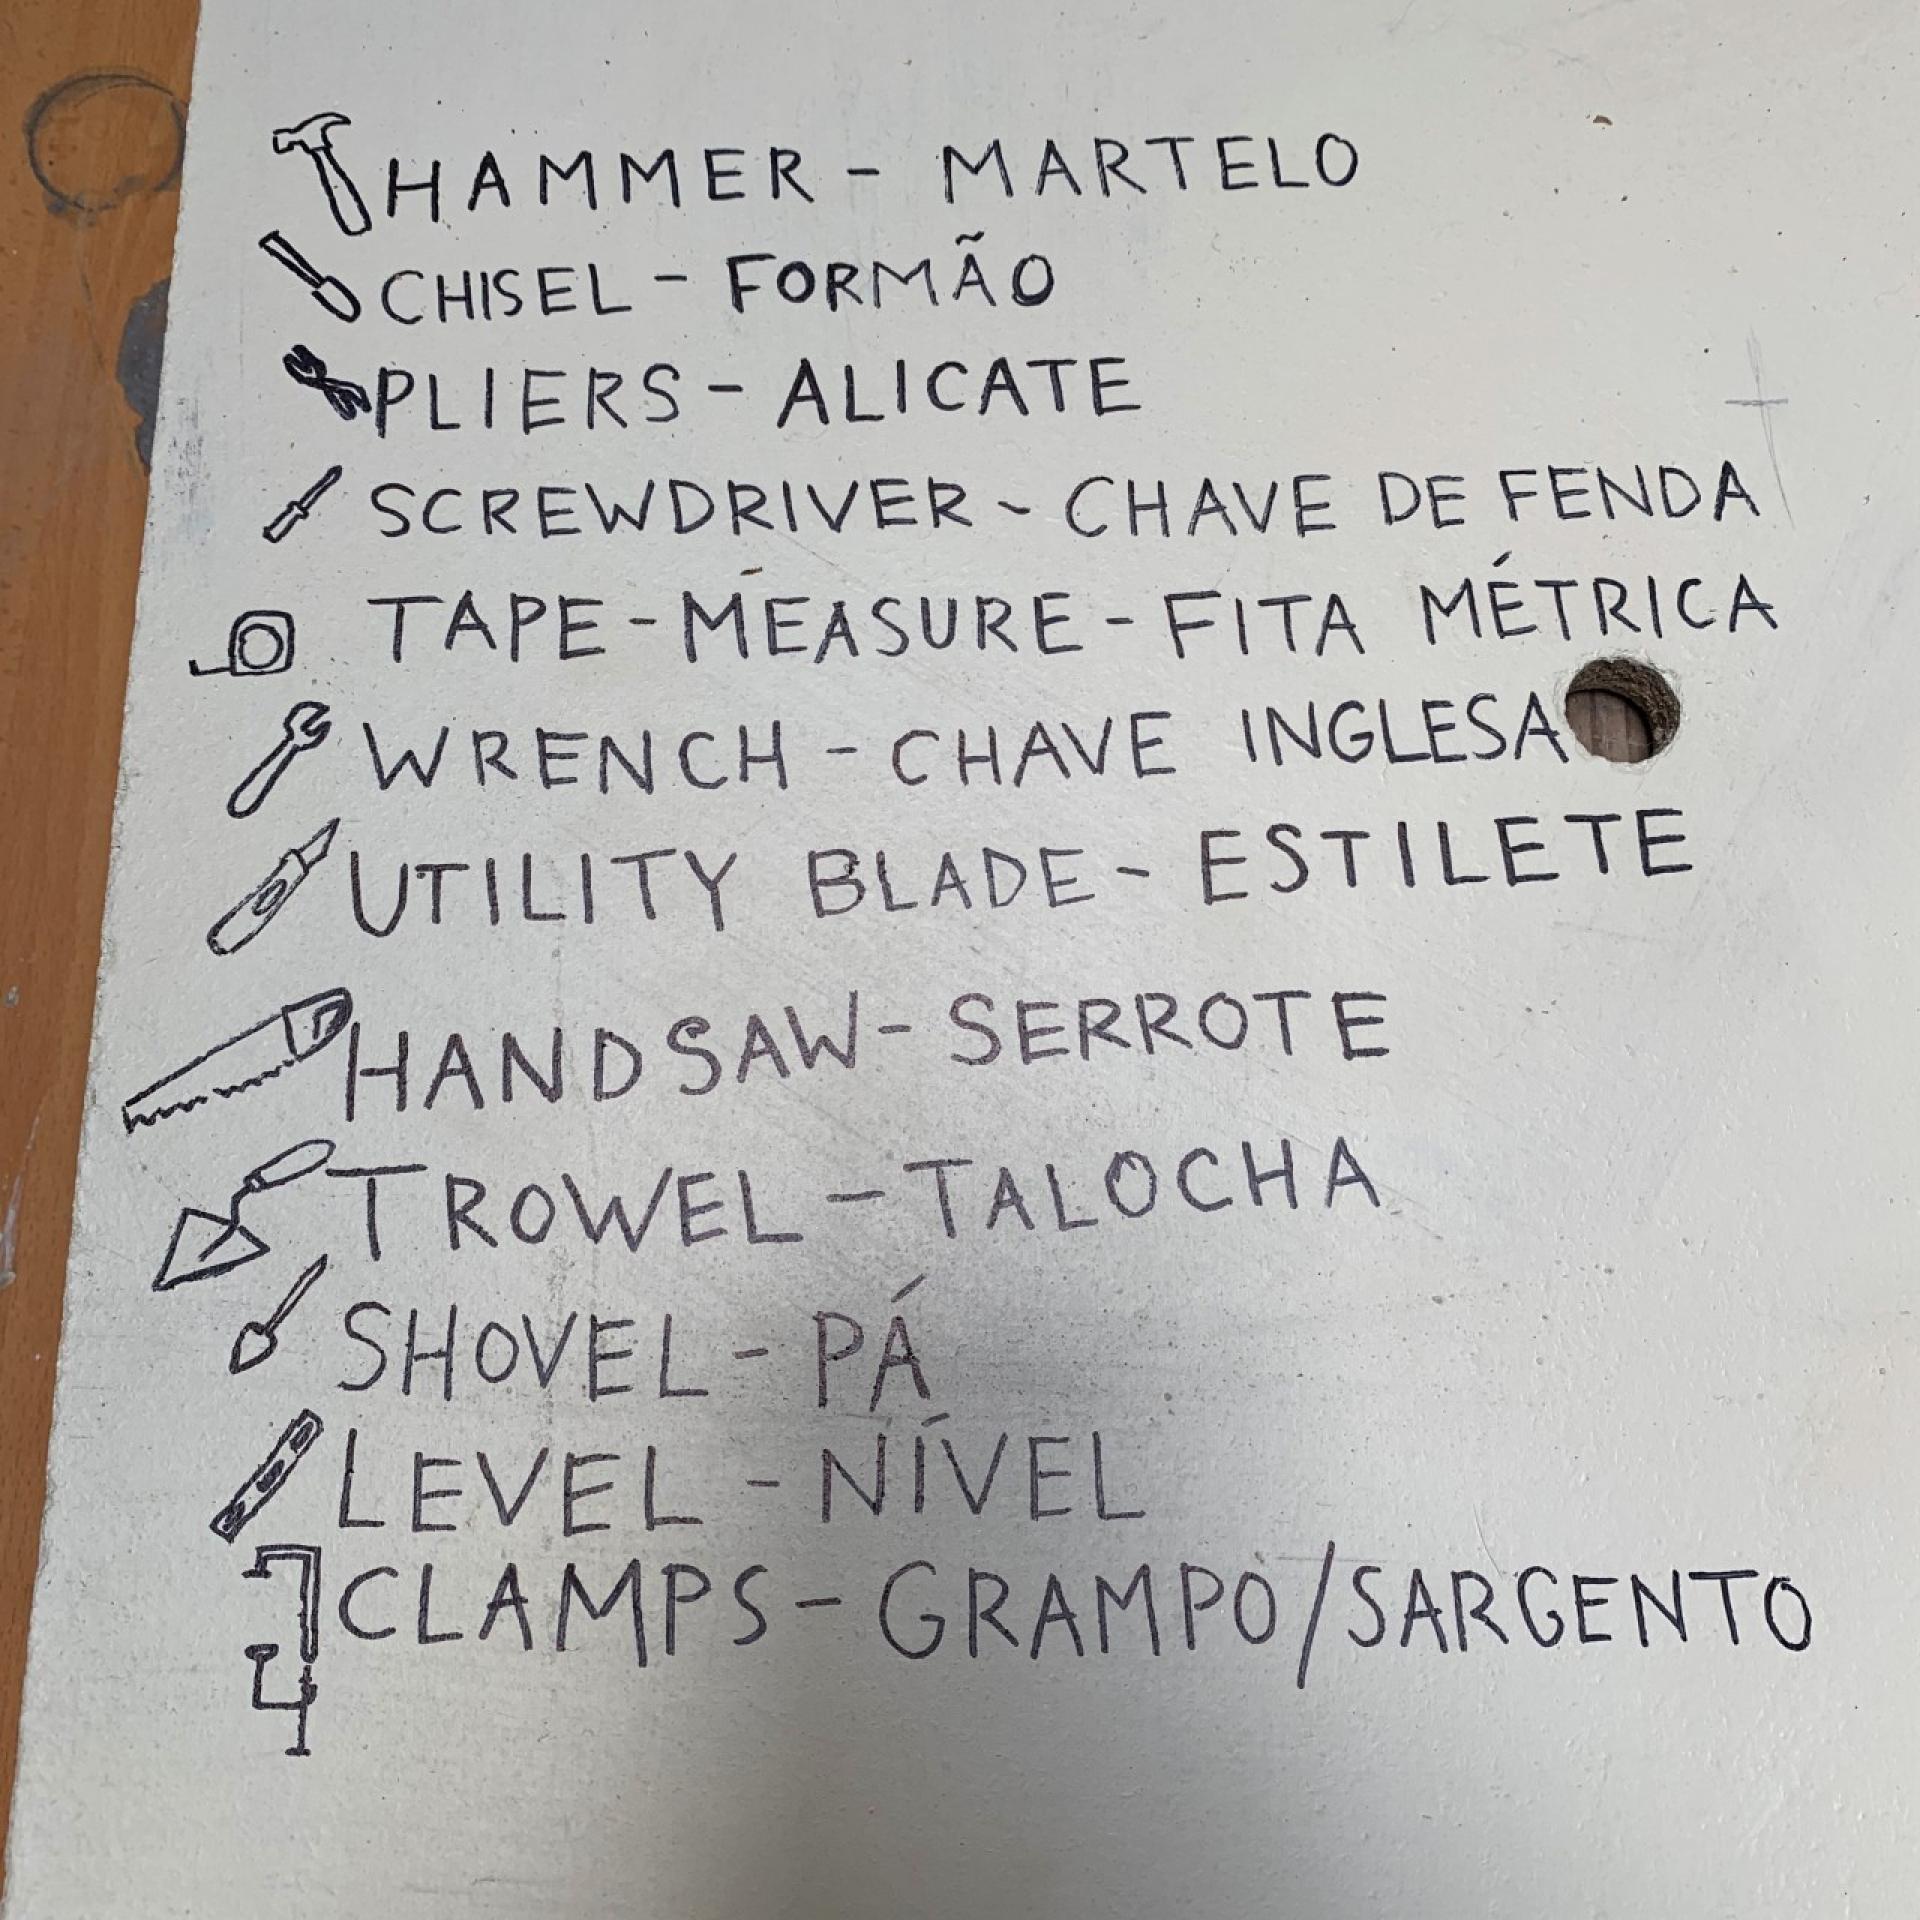 HAMMER - MARTELO
CHISEL - FORMÃO
PLIERS - ALICATE
SCREWDRIVER - CHAVE DE FENDA
TAPE-MEASURE - FITA MÉTRICA
WRENCH - CHAVE INGLESA
UTILITY BLADE - ESTILETE
HANDSAW - SERROTE
TROWEL - TALOCHA
SHOVEL - PÁ
LEVEL - NÍVEL
CLAMPS - GRAMPO/SARGENTO